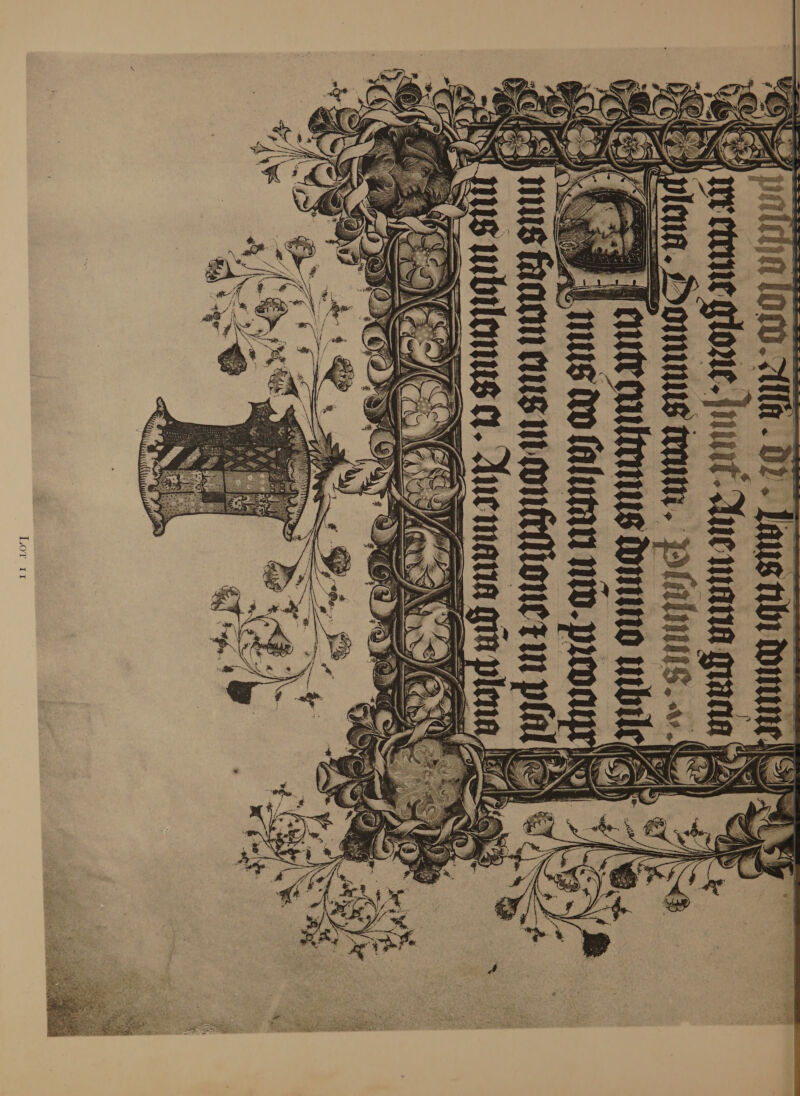 palcha loco. Alla. Dr. laus tibi domine
rex eterne glorie. Inuit. Aue maria gracia
plena. Dominus tecum. Psalmus.
Venite exultemus domino iubile
mus deo salutari nro. preocupe
mus faciem eius in confessione et in psal
mis iubilemus ei. Aue maria gra plena
LOT 11